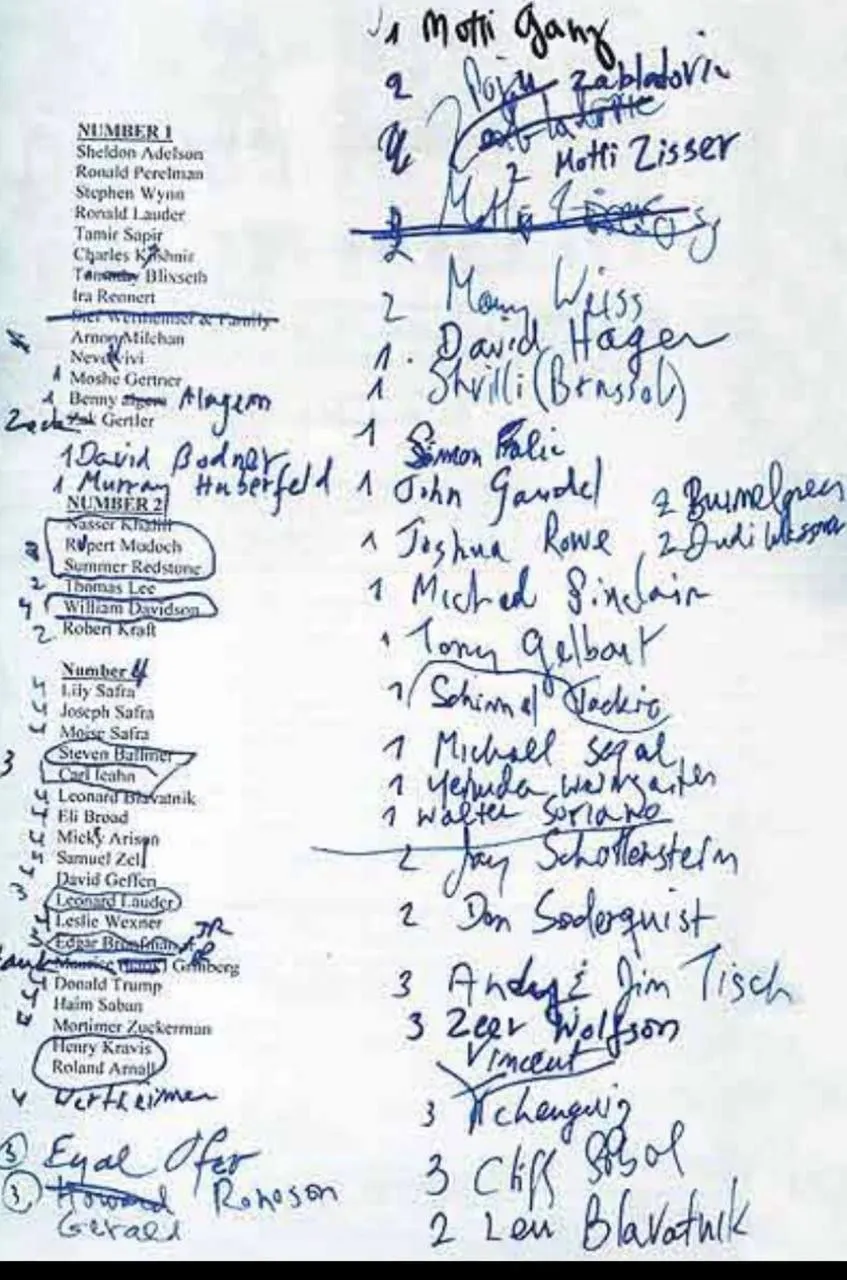 NUMBER 1
Sheldon Adelson
Ronald Perelman
Stephen Wynn
Ronald Lauder
Tamir Sapir
Charles Kushnir
Blixseth
Ira Rennert
Stef Wertheimer & Family
Arnon Milchan
Vivi
1 Moshe Gertner
1 Benny Alagem
Gertler
1 David Bodner
1 Murray Huberfeld
NUMBER 2
Nasser Khalili
Rupert Mudoch
Summer Redstone
2 Thomas Lee
4 William Davidson
2 Robert Kraft
Number 4
4 Lily Safra
4 Joseph Safra
4 Moise Safra
3 Steven Ballmer
Carl Icahn
4 Leonard Blavatnik
4 Eli Broad
4 Micky Arison
Samuel Zell
David Geffen
3 Leonard Lauder
4 Leslie Wexner
Edgar Bronfman JR
Grinberg
4 Donald Trump
4 Haim Saban
Mortimer Zuckerman
Henry Kravis
Roland Arnall
4 Wertheimer
3 Eyal Ofer
3 Howard Ronoson
Gerald
1 Motti Ganz
2 Poju Zabladovic
2 Motti Zisser
2 Weiss
1. David Hager
1 (Brussol)
1 Simon Falic
1 John Gandel
1 Joshua Rowe
2
2 Dudi
1 Michael Sinclair
1 Tony Gelbart
1 Schimel Jackie
1 Michael Segal
1 Yehuda Waingarten
1 Walter Soriano
2 Jay Schottenstein
2 Don Soderquist
3 Andy & Jim Tisch
3 Zeev Wolfson
Vincent
3 Tchenguiz
3 Cliff Sobol
2 Len Blavatnik